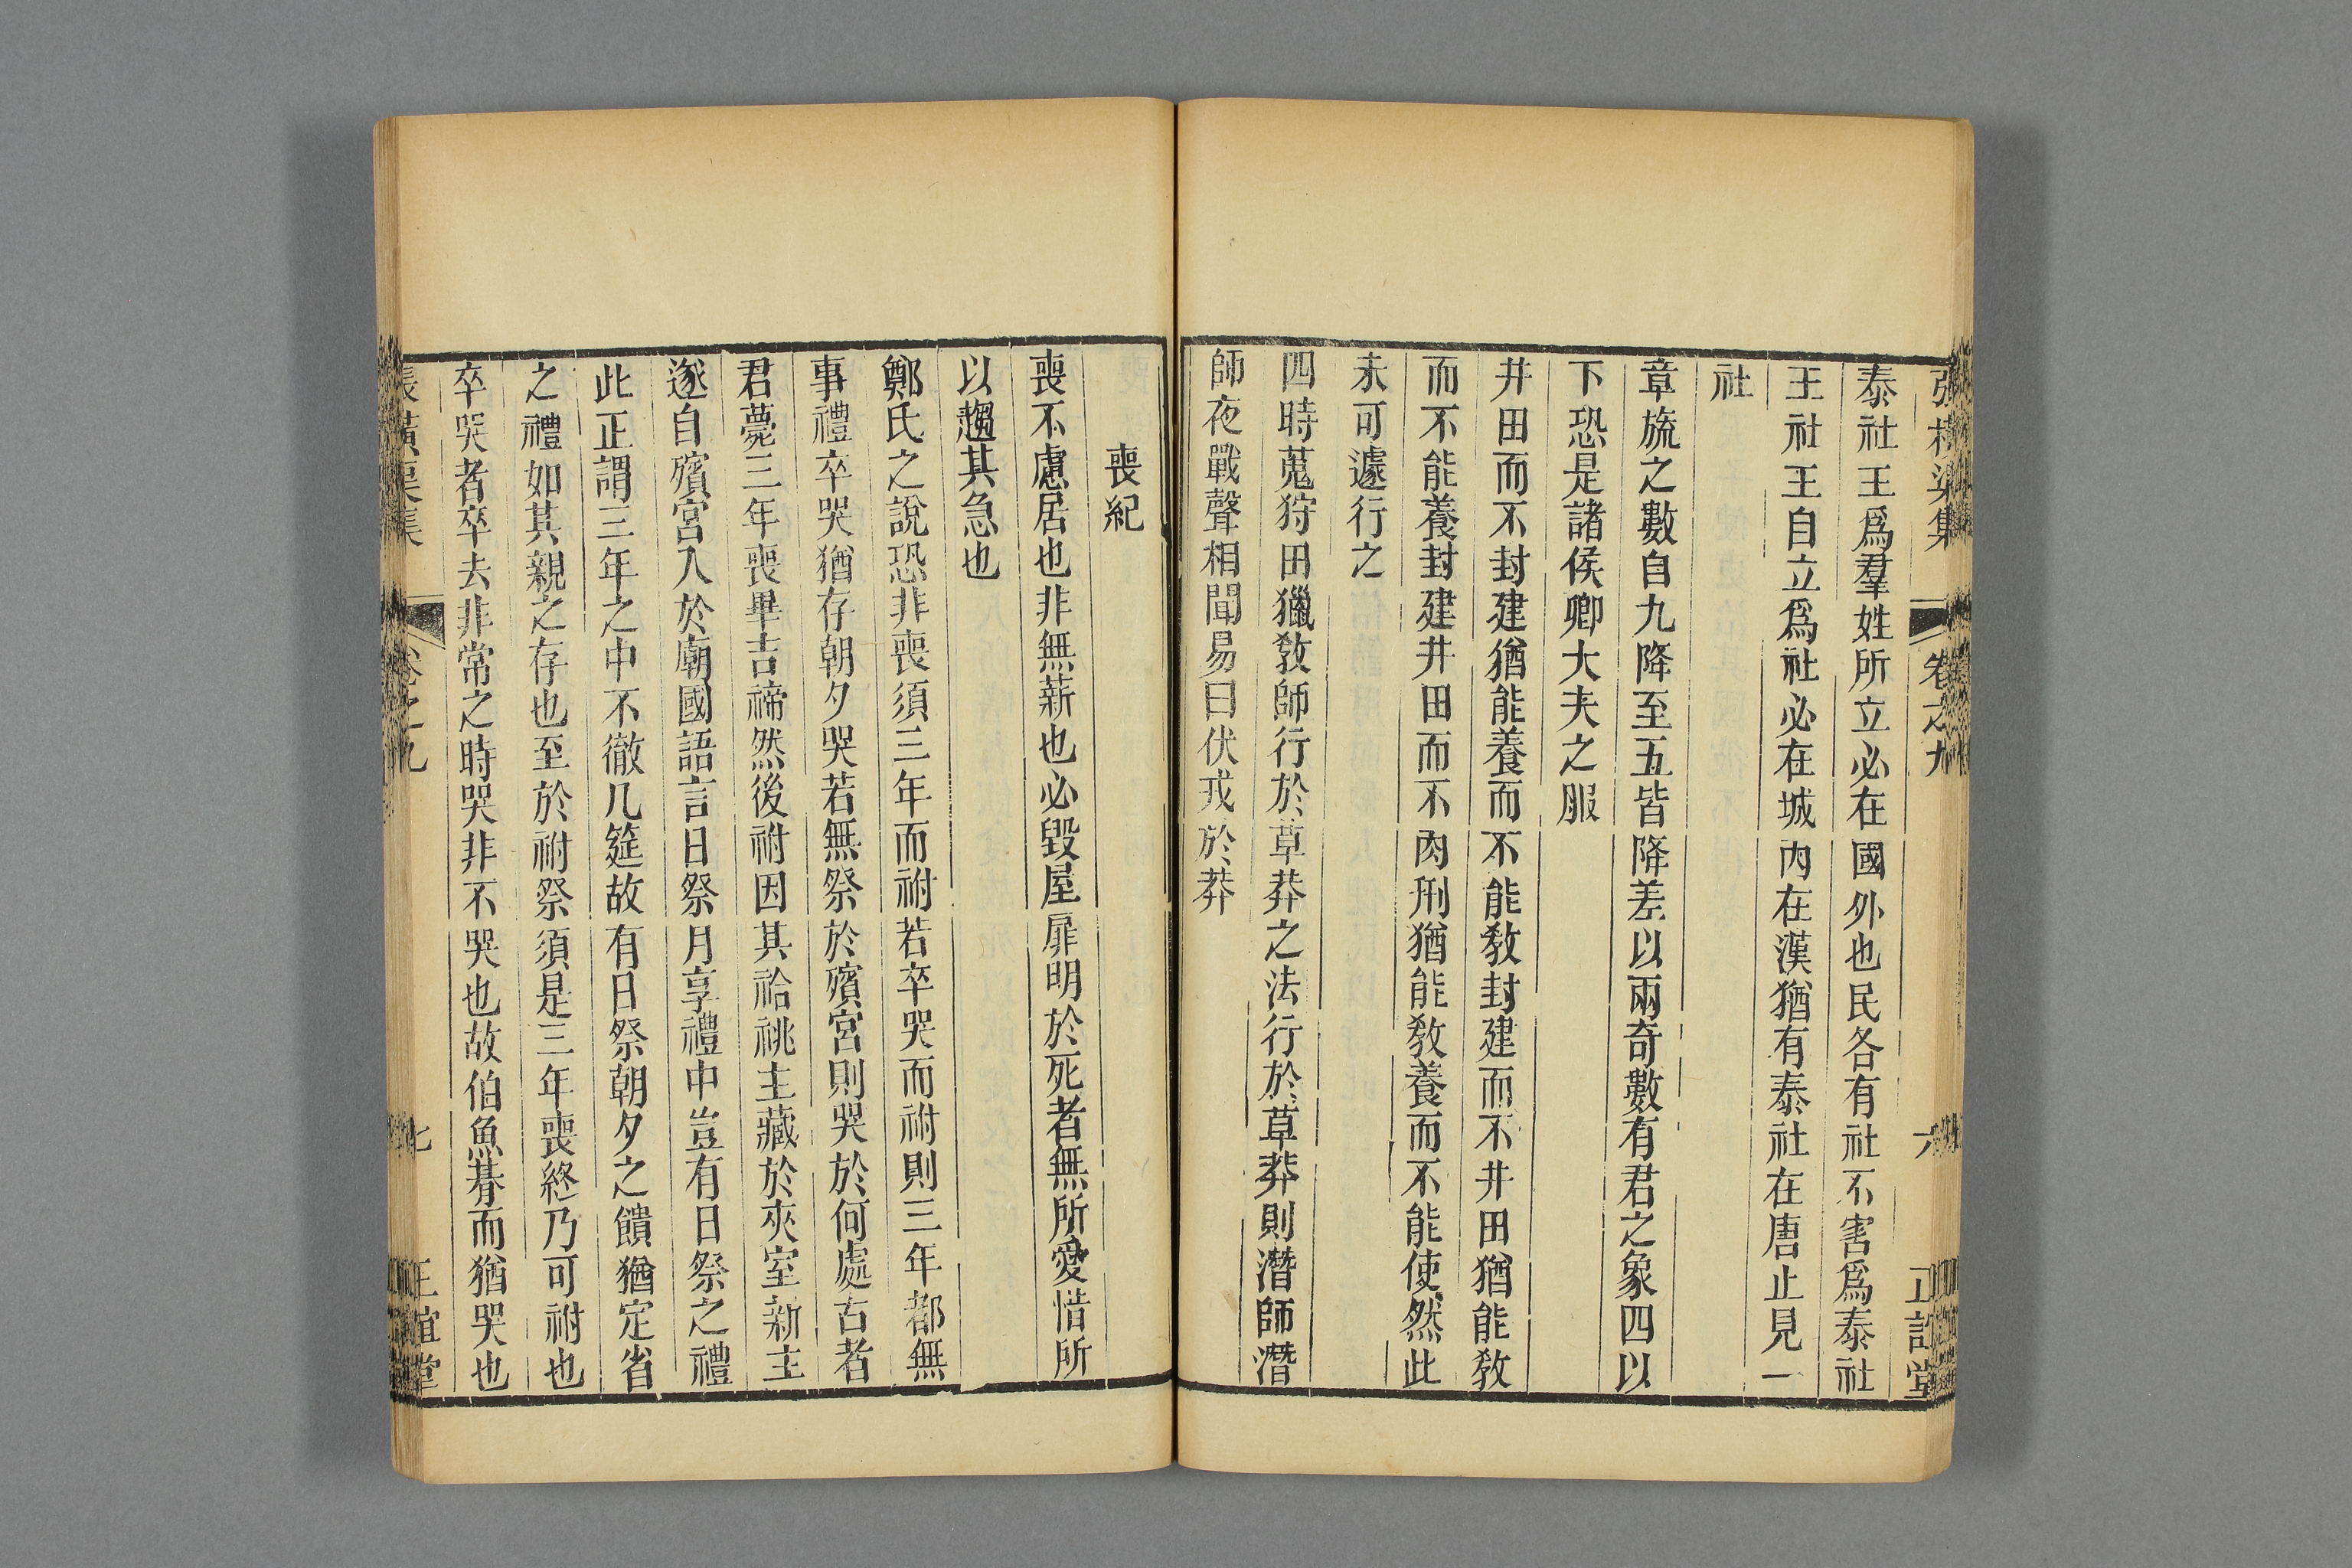 泰社王爲羣姓所立必在國外也民各有社不害爲泰社
王社王自立爲社必在城內在漢猶有泰社在唐止見一
社
章旒之數自九降至五皆降差以兩奇數有君之象四以
下恐是諸侯卿大夫之服
井田而不封建猶能養而不能敎封建而不井田猶能敎
而不能養封建井田而不肉刑猶能敎養而不能使然此
未可遽行之
四時蒐狩田獵敎師行於草莽之法行於草莽則潛師潛
師夜戰聲相聞易曰伏戎於莽
喪紀
喪不慮居也非無薪也必毀屋扉明於死者無所愛惜所
以趨其急也
鄭氏之說恐非喪須三年而祔若卒哭而祔則三年都無
事禮卒哭猶存朝夕哭若無祭於殯宮則哭於何處古者
君薨三年喪畢吉禘然後祔因其祫祧主藏於夾室新主
遂自殯宮入於廟國語言日祭月享禮中豈有日祭之禮
此正謂三年之中不徹几筵故有日祭朝夕之饋猶定省
之禮如其親之存也至於祔祭須是三年喪終乃可祔也
卒哭者卒去非常之時哭非不哭也故伯魚朞而猶哭也
卷之九
七